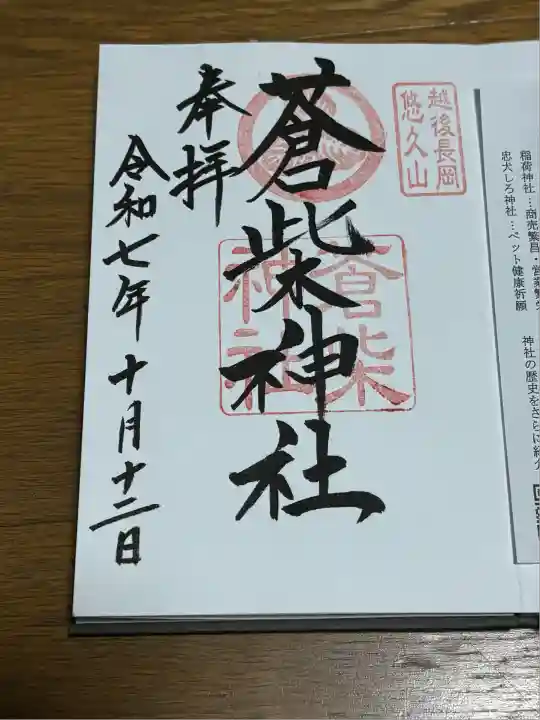 越後長岡
悠久山
蒼柴神社
蒼柴
神社
奉拝
令和七年十月十二日
稲荷神社…商売繁昌・営業繁栄
忠犬しろ神社…ペット健康祈願
神社の歴史をさらに紹介